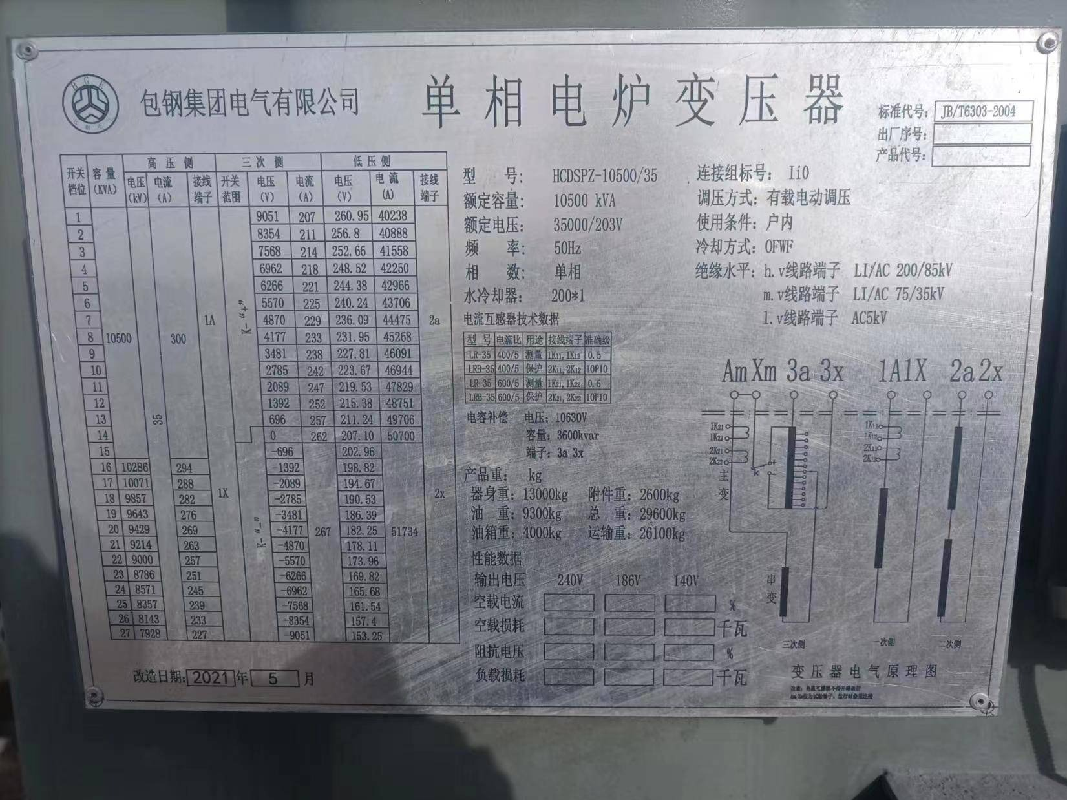 包钢集团电气有限公司
单相电炉变压器
标准代号: JB/T6303-2004
出厂序号:
产品代号:
开关档位 容量(KVA) 高压侧 三次侧 低压侧
电压(kV) 电流(A) 接线端子 开关范围 电压(V) 电流(A) 电压(V) 电流(A) 接线端子
1 9051 207 260.95 40238
2 8354 211 256.8 40888
3 7568 214 252.66 41558
4 6962 218 248.52 42250
5 6266 221 244.38 42966
6 5570 225 240.24 43706
7 1A 4870 229 236.09 44475 2a
8 10500 300 4177 233 231.95 45268
9 3481 238 227.81 46091
10 2785 242 223.67 46944
11 2089 247 219.53 47829
12 1392 252 215.38 48751
13 35 696 257 211.24 49706
14 0 262 207.10 50700
15 -696 202.96
16 10286 294 -1392 198.82
17 10071 288 1X -2089 194.67 2x
18 9857 282 -2785 190.53
19 9643 276 -3481 186.39
20 9429 269 -4177 267 182.25 51734
21 9214 263 -4870 178.11
22 9000 257 -5570 173.96
23 8786 251 -6266 169.82
24 8571 245 -6962 165.68
25 8357 239 -7568 161.54
26 8143 233 -8354 157.4
27 7928 227 -9051 153.25
K-"+"
K-"-"
改造日期: 2021 年 5 月
型号: HCDSPZ-10500/35
额定容量: 10500 kVA
额定电压: 35000/203V
频率: 50Hz
相数: 单相
水冷却器: 200*1
电流互感器技术数据
型号 电流比 用途 接线端子 准确级
LR-35 400/5 测量 1K₁₁,1K₁₂ 0.5
LRB-35 400/5 保护 2K₁₁,2K₁₂ 10P10
LR-35 600/5 测量 1K₂₁,1K₂₂ 0.5
LRB-35 600/5 保护 2K₂₁,2K₂₂ 10P10
电容补偿: 电压: 10630V
容量: 3600kvar
端子: 3a 3x
产品重: kg
器身重: 13000kg 附件重: 2600kg
油重: 9300kg 总重: 29600kg
油箱重: 4000kg 运输重: 26100kg
性能数据
输出电压 240V 186V 140V
空载电流 %
空载损耗 千瓦
阻抗电压 %
负载损耗 千瓦
连接组标号: Ii0
调压方式: 有载电动调压
使用条件: 户内
冷却方式: OFWF
绝缘水平: h.v线路端子 LI/AC 200/85kV
m.v线路端子 LI/AC 75/35kV
l.v线路端子 AC5kV
Am Xm 3a 3x 1A1X 2a2x
主变
串变
三次侧 一次侧 二次侧
变压器电气原理图